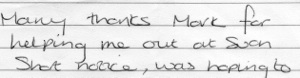 Many thanks Mark for
helping me out at Such
Short notice, was hoping to